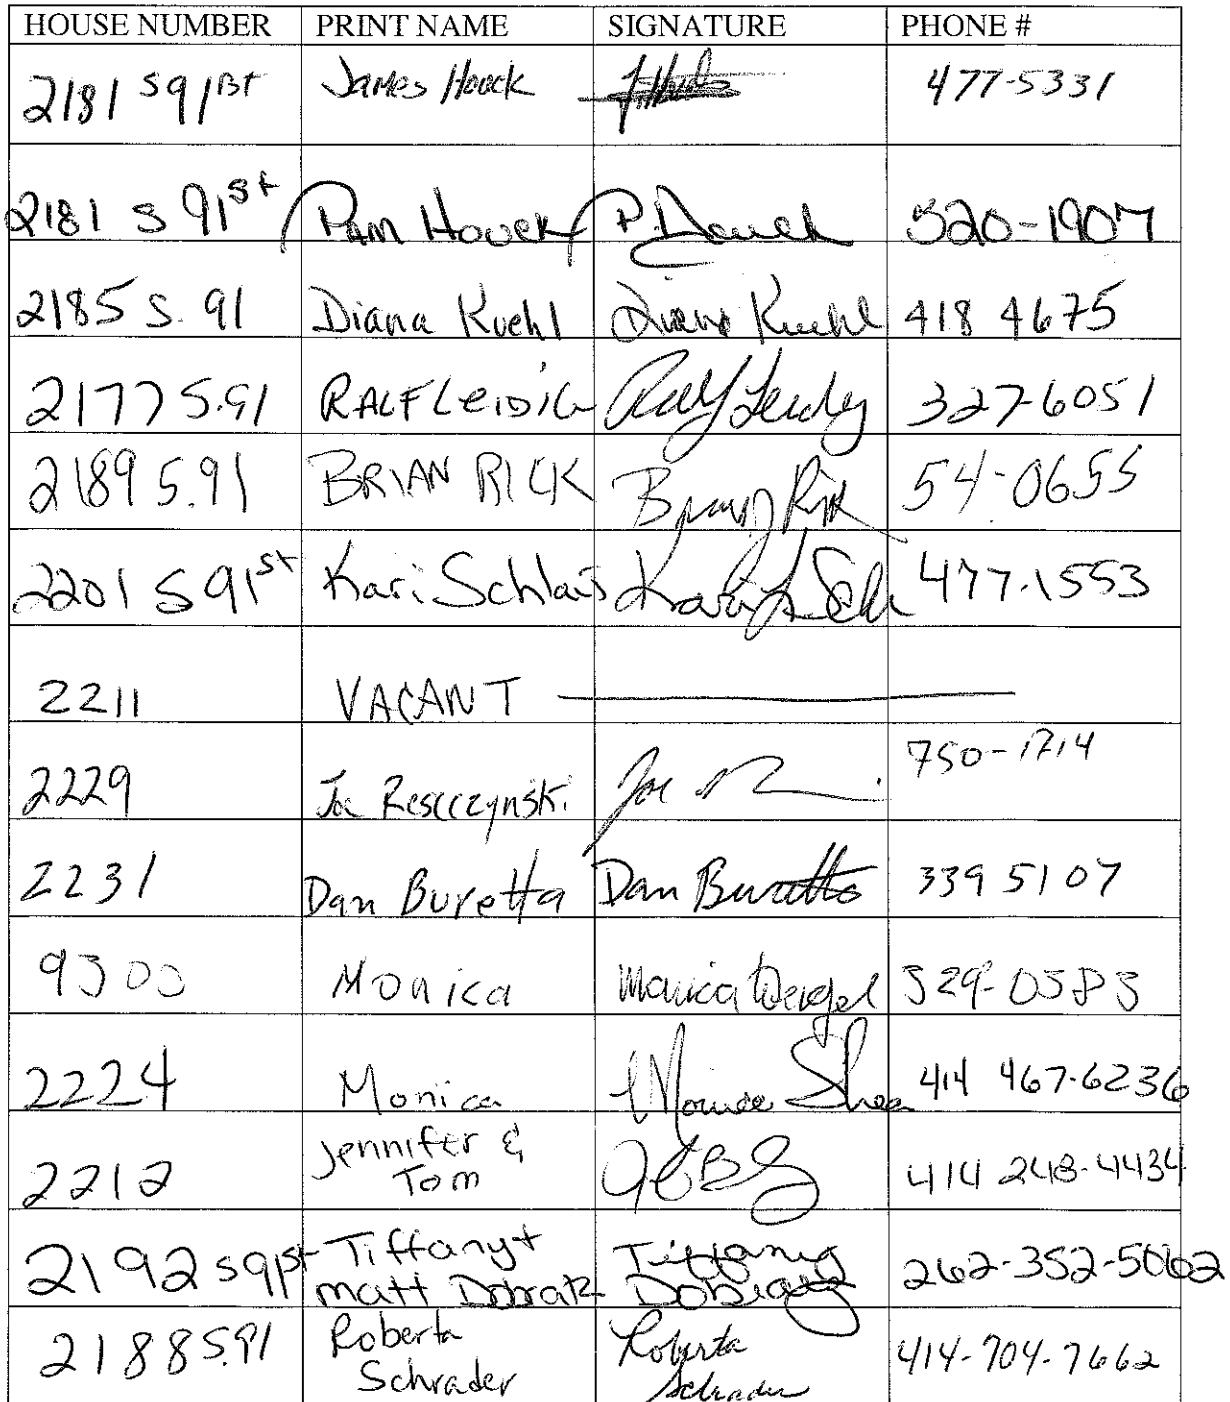 HOUSE NUMBER PRINT NAME SIGNATURE PHONE #
2181 S 91st James Houck 477-5331
2181 S 91st Pam Houck P. Houck 520-1907
2185 S. 91 Diana Kuehl Diana Kuehl 418 4675
2177 S.91 RALF LEIDIG Ralf Leidig 327-6051
2189 S.91 BRIAN RICK Brian Rick 54-0655
2201 S 91st Kari Schlais Kari 477-1553
2211 VACANT
2229 Joe Joe 750-1714
2231 Dan Buretta Dan Buretta 339 5107
9300 Monica Monica Weigel 329-0583
2224 Monica Monica Shea 414 467-6236
2212 Jennifer &
Tom 414 248-4434
2192 S 91st Tiffany + Tiffany 262-352-5062
matt Dobratz
2188 S.91 Roberta Roberta 414-704-7662
Schrader Schrader